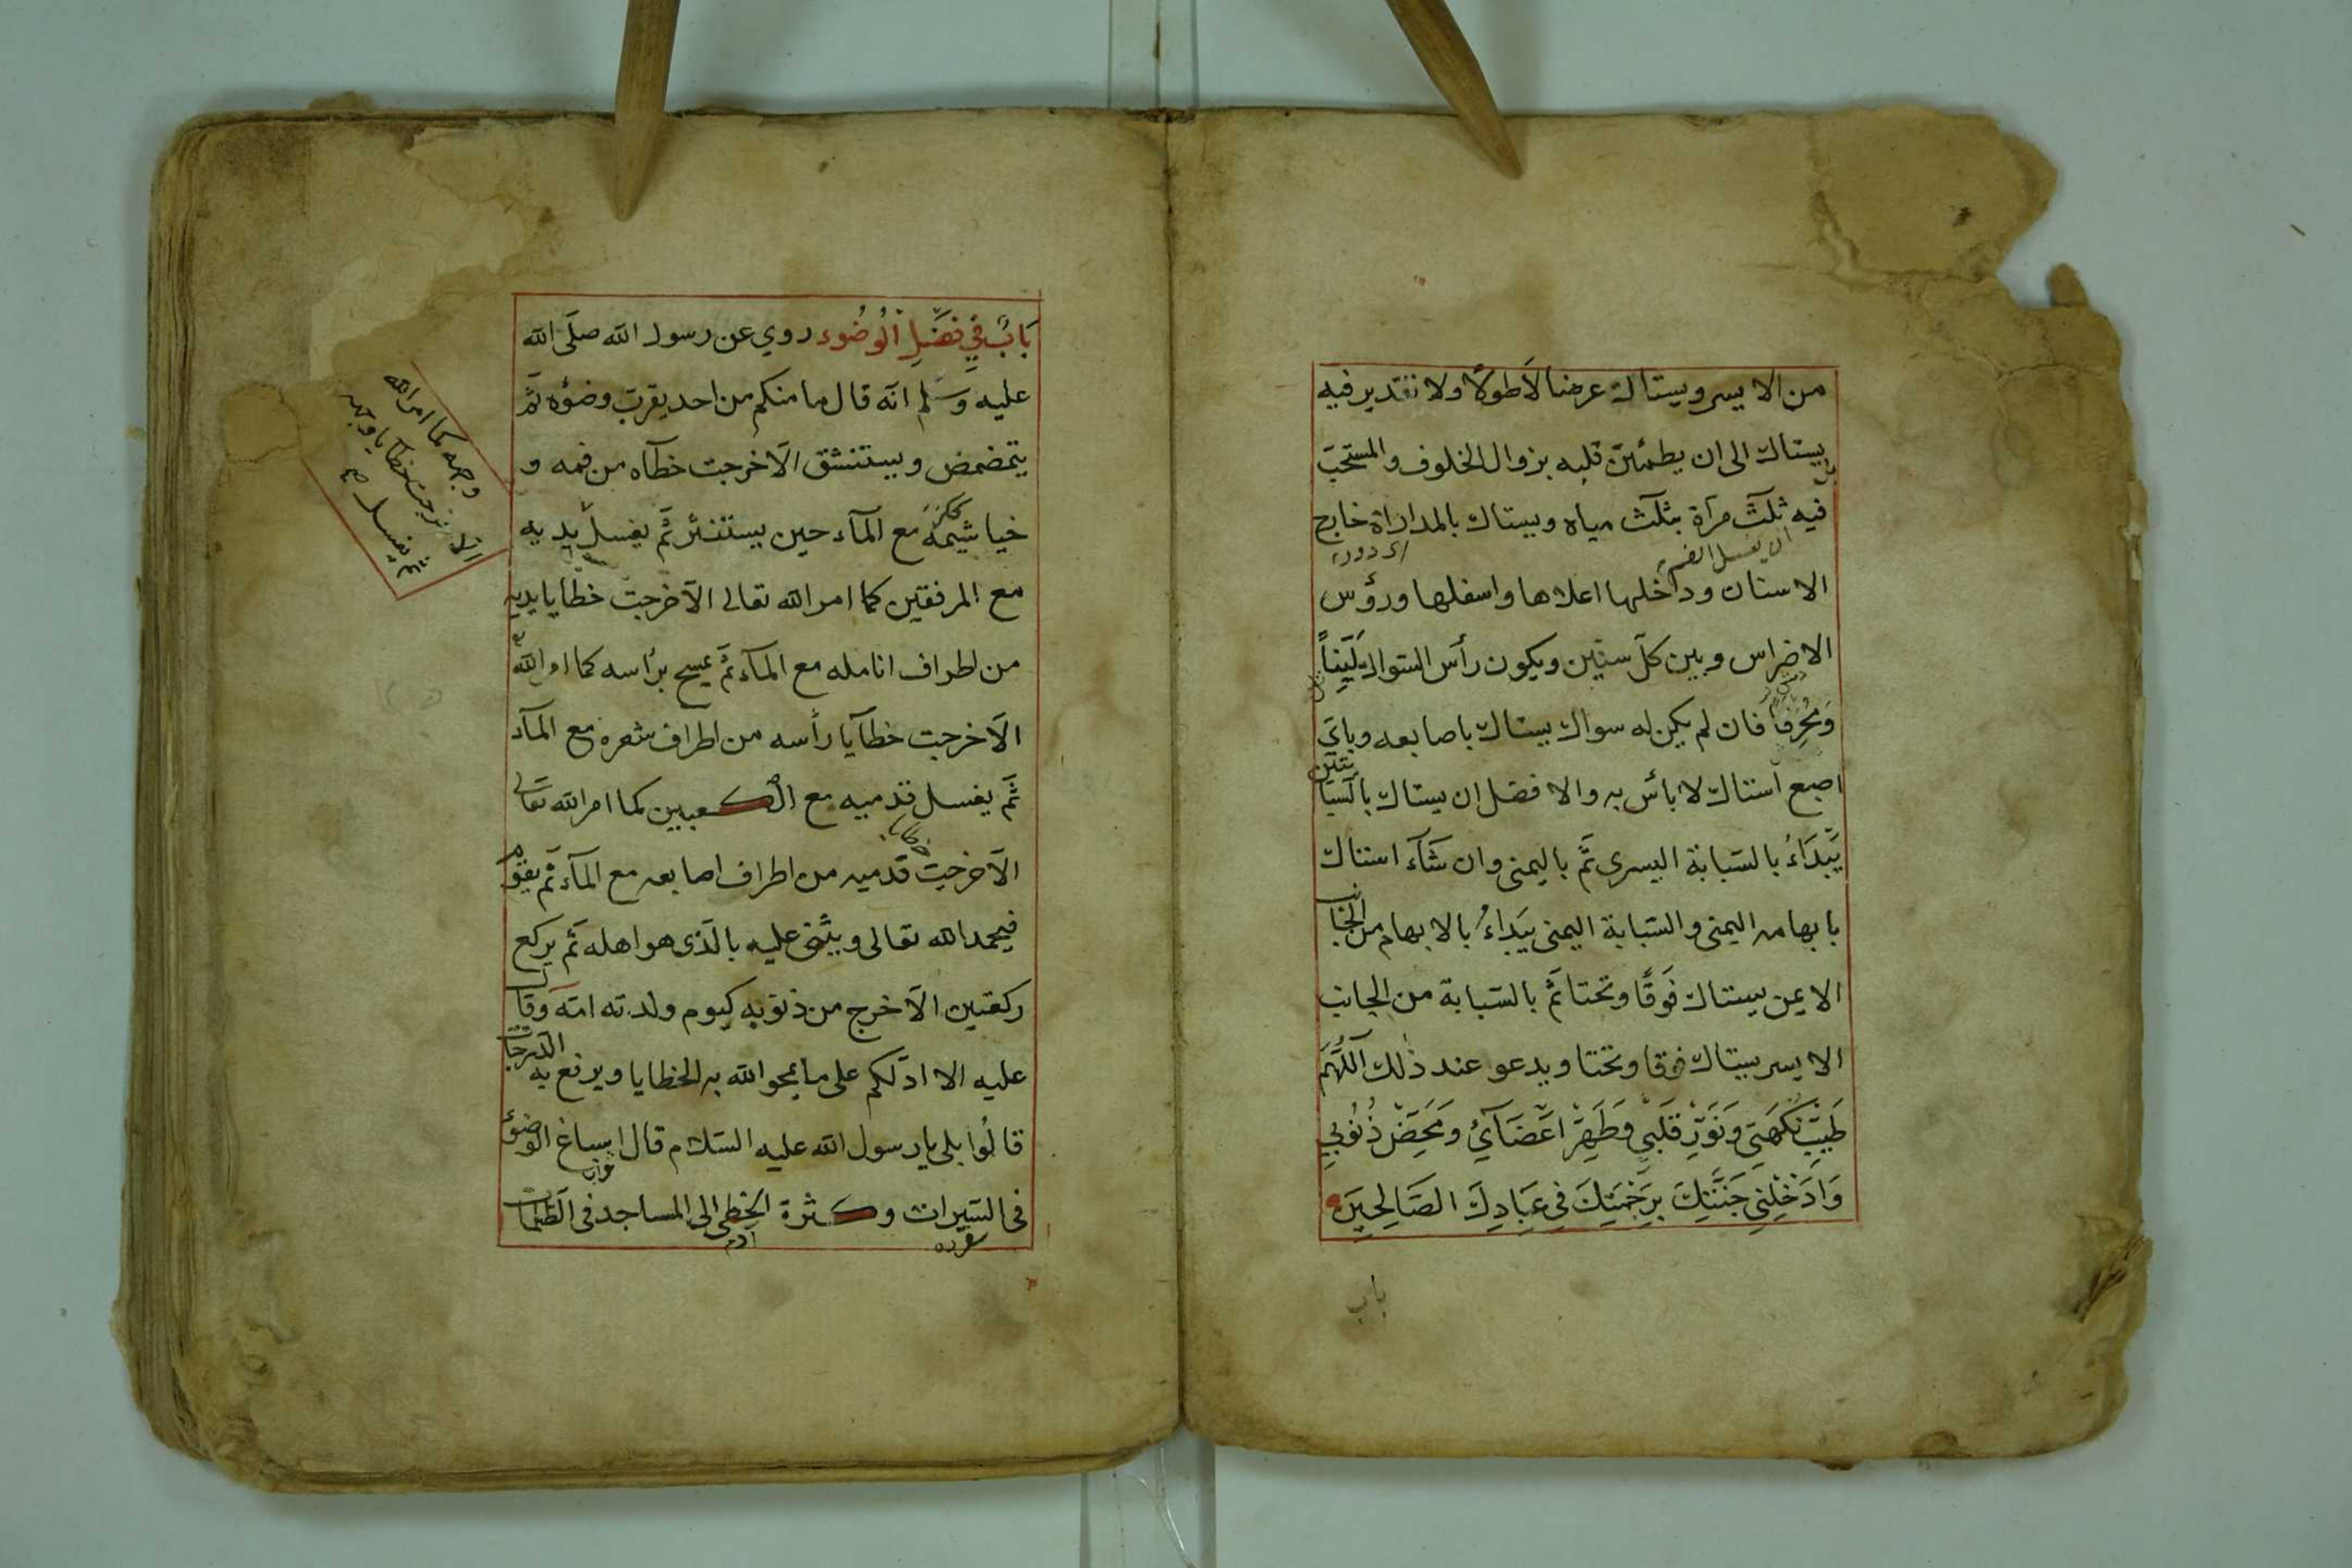 من الايسر ويستاك عرضا لَاطولًا ولا تقدير فيه
بل يستاك الى ان يطمئنّ قلبه بزوال الخلوف والمستحبّ
فيه ثلٰث مرّاة بثلٰث مياه ويستاك بالمداراة خارج
ان يغسل الفم
الاسنان وداخلها اعلاها واسفلها ورؤس
الاضراس وبين كلّ سنّين ويكون رأس السّواك لَيِّناً
وَمُحرفاً فان لم يكن له سواك يستاك باصابعه وبايّ
اصبع استاك لا بأس به والافضل ان يستاك بالسّبّابتين
يَبْدَاءُ بالسّبّابة اليسرى ثمّ باليمنى وان شآء استاك
بابهامه اليمنى والسّبّابة اليمنى يَبَداءُ بالابهام من الجانب
الايمن يستاك فَوقًا وتحتا ثمّ بالسّبّابة من الجانب
الايسر يستاك فوقا وتحتا ويدعو عند ذٰلك اَللّٰهُمَّ
طَيِّبْ نَكْهَتِي وَنَوِّرْ قَلْبِي وَطَهِّرْ اَعْضَآئِي وَمَحِّضْ ذُنُوبِي
وَاَدْخِلْنِي جَنَّتِكَ بِرَحْمَتِكَ فِي عِبَادِكَ الصَّالِحِينَ
باب
بَابٌ فِي فَضْلِ الْوُضُوء روي عن رسول الله صلّى الله
عليه وسلم انّه قال ما منكم من احد يقرب وضوٌه ثمّ
يتمضمض ويستنشق الّا خرجت خطآه من فمه و
خياشيمه مع المآء حين يستنثر ثمّ يغسل يديه
مع المرفقين كما امر الله تعالى الّا خرجت خطايا يديه
من اطراف انامله مع المآء ثمّ يمسح برأسه كما امر الله
الّا خرجت خطآيا رأسه من اطراف شعره مع المآء
ثمّ يغسل قدميه مع الكعبين كما امر الله تعالى
الّا خرجت قدميه من اطراف اصابعه مع المآء ثمّ يقوم
فيحمد الله تعالى ويثنى عليه بالّذى هو اهله ثمّ يركع
ركعتين الّا خرج من ذنوبه كيوم ولدته امّه وقال
عليه الا ادلّكم على ما يمحو الله به الخطايا ويرفع به الدّرجات
قالُوا بلى يا رسول الله عليه السّلام قال اسباغ الوضوٌ
فى السّبرات وكثرة الخطى الى المساجد فى الظّلمات
وجهه كما امر الله
الا خرجت خطايا وجهه
ثم يغسل صح